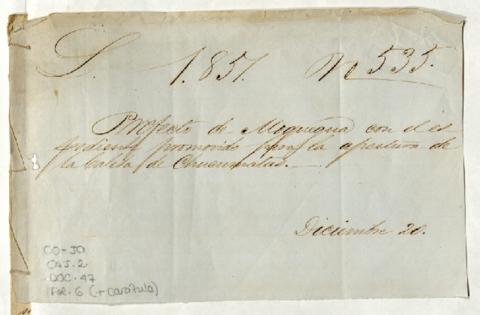 S. 1.851. N 535.
Prefecto de Moquegua con el es
pediente promovido para la apertura de
la caleta de Chucumatas.
Diciembre 20.
CO-JO
CAJ-2
DOC-47
Fol-6 (+ carátula)